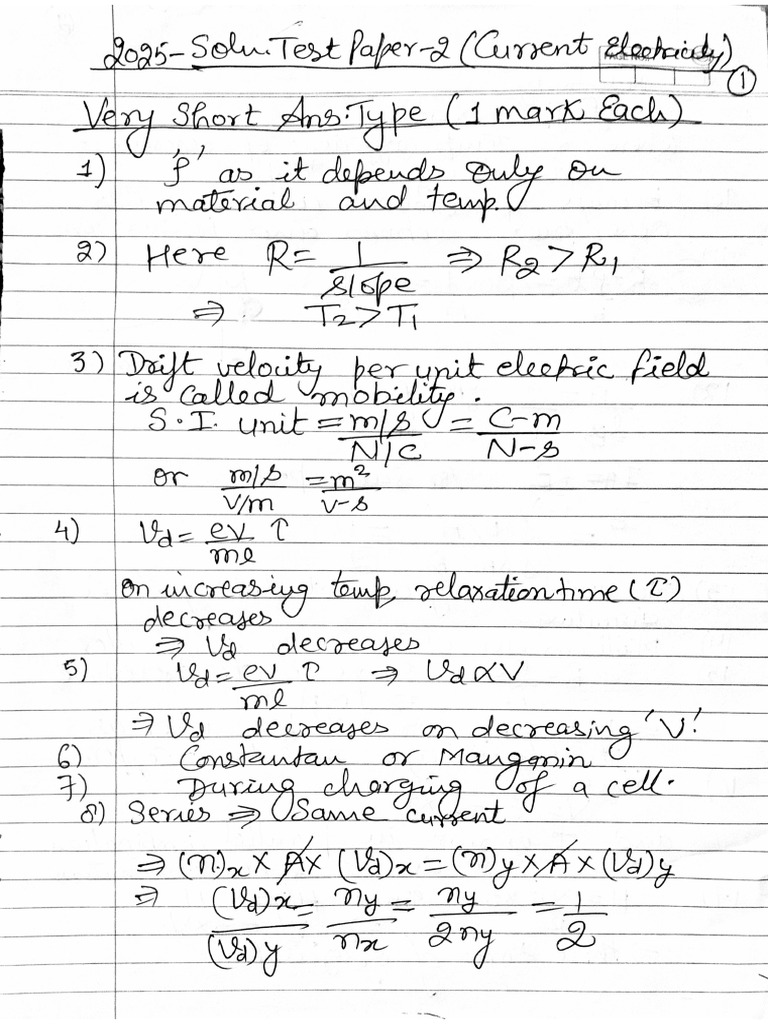 2025 - Solu. Test Paper-2 (Current Electricity)
PAGE NO.
1
Very Short Ans: Type (1 mark Each)
1) 'ρ' as it depends only on
material and temp.
2) Here R = 1/slope ⇒ R2 > R1
⇒ T2 > T1
3) Drift velocity per unit electric field
is called mobility.
S.I. unit = m/s / N/C = C-m / N-s
or m/s / V/m = m² / V-s
4) Vd = eV/ml τ
On increasing temp. relaxation time (τ)
decreases
⇒ Vd decreases
5) Vd = eV/ml τ ⇒ Vd ∝ V
⇒ Vd decreases on decreasing 'V'.
6) Constantan or Mangnin
7) During charging of a cell.
8) Series ⇒ Same current
⇒ (n)x × A × (Vd)x = (n)y × A × (Vd)y
⇒ (Vd)x / (Vd)y = ny / nx = ny / 2ny = 1/2